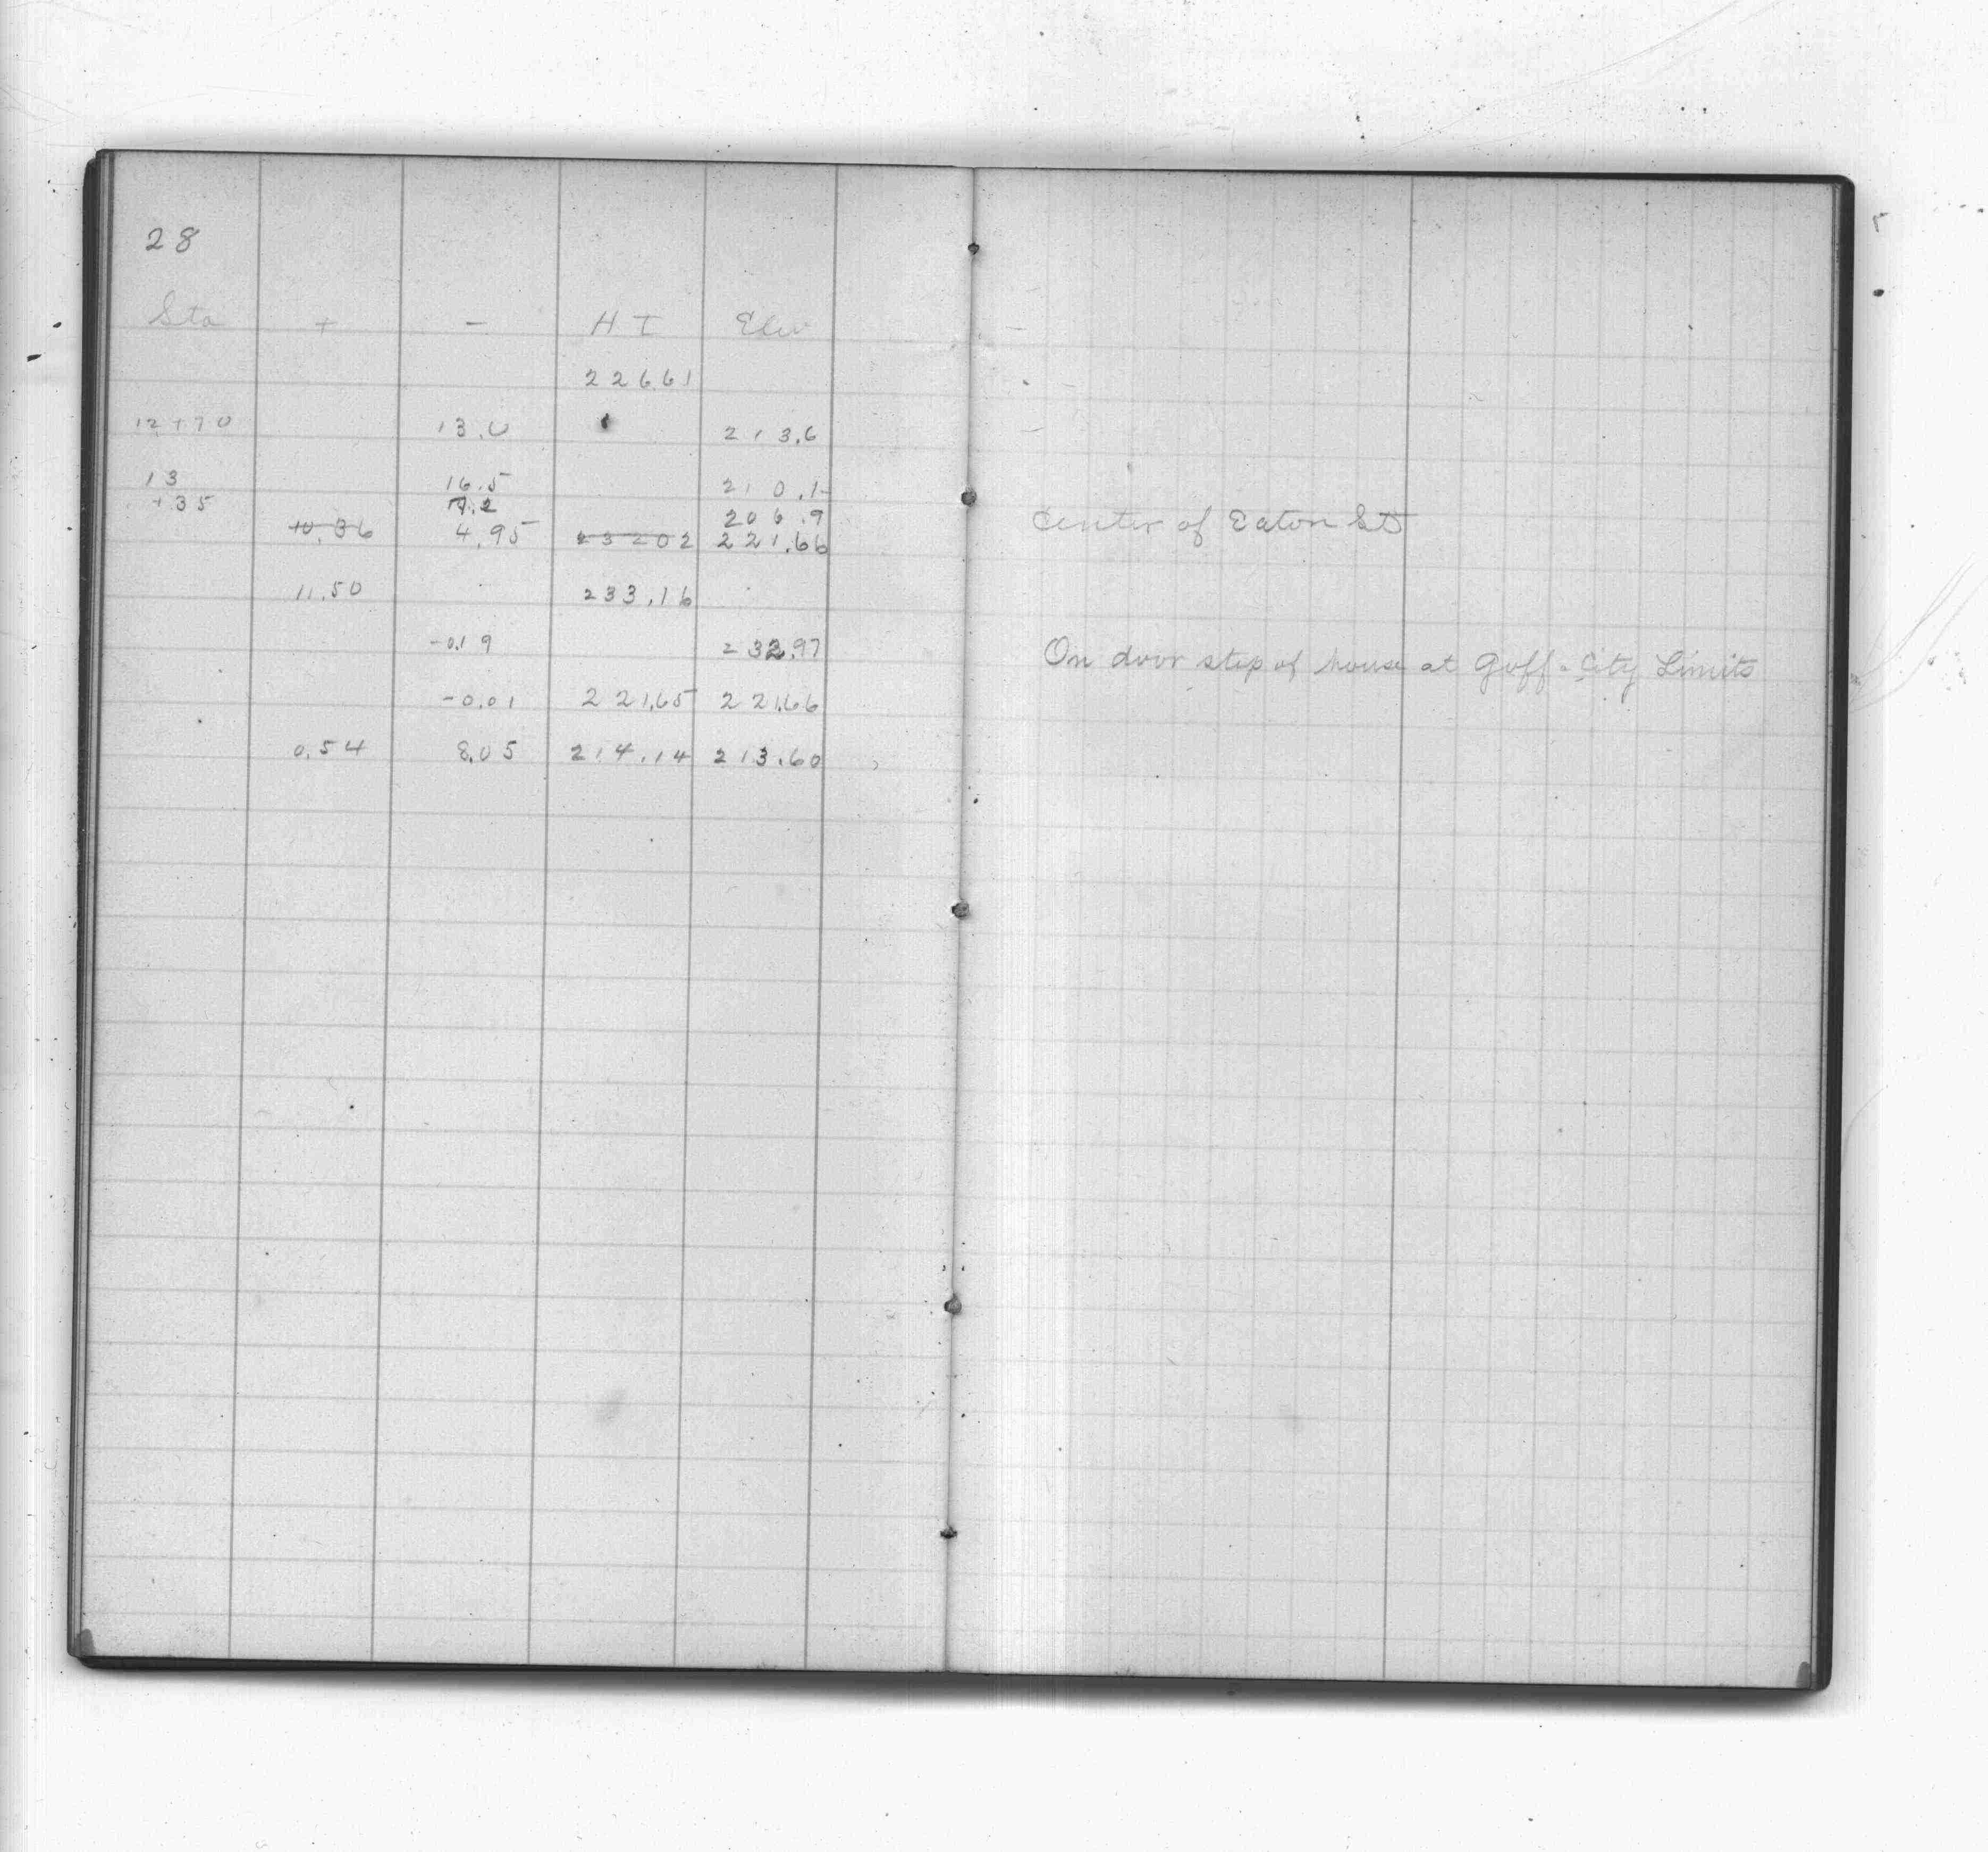 28
Sta + - H I Elev
226.61
12+70 13.0 213.6
13 16.5 210.1
+35 206.9 Center of Eaton St
10.36 4.95 23202 221.66
11.50 233.16
-0.19 232.97 On door step of house at Goff - City Limits
-0.01 221.65 221.66
0.54 8.05 214.14 213.60